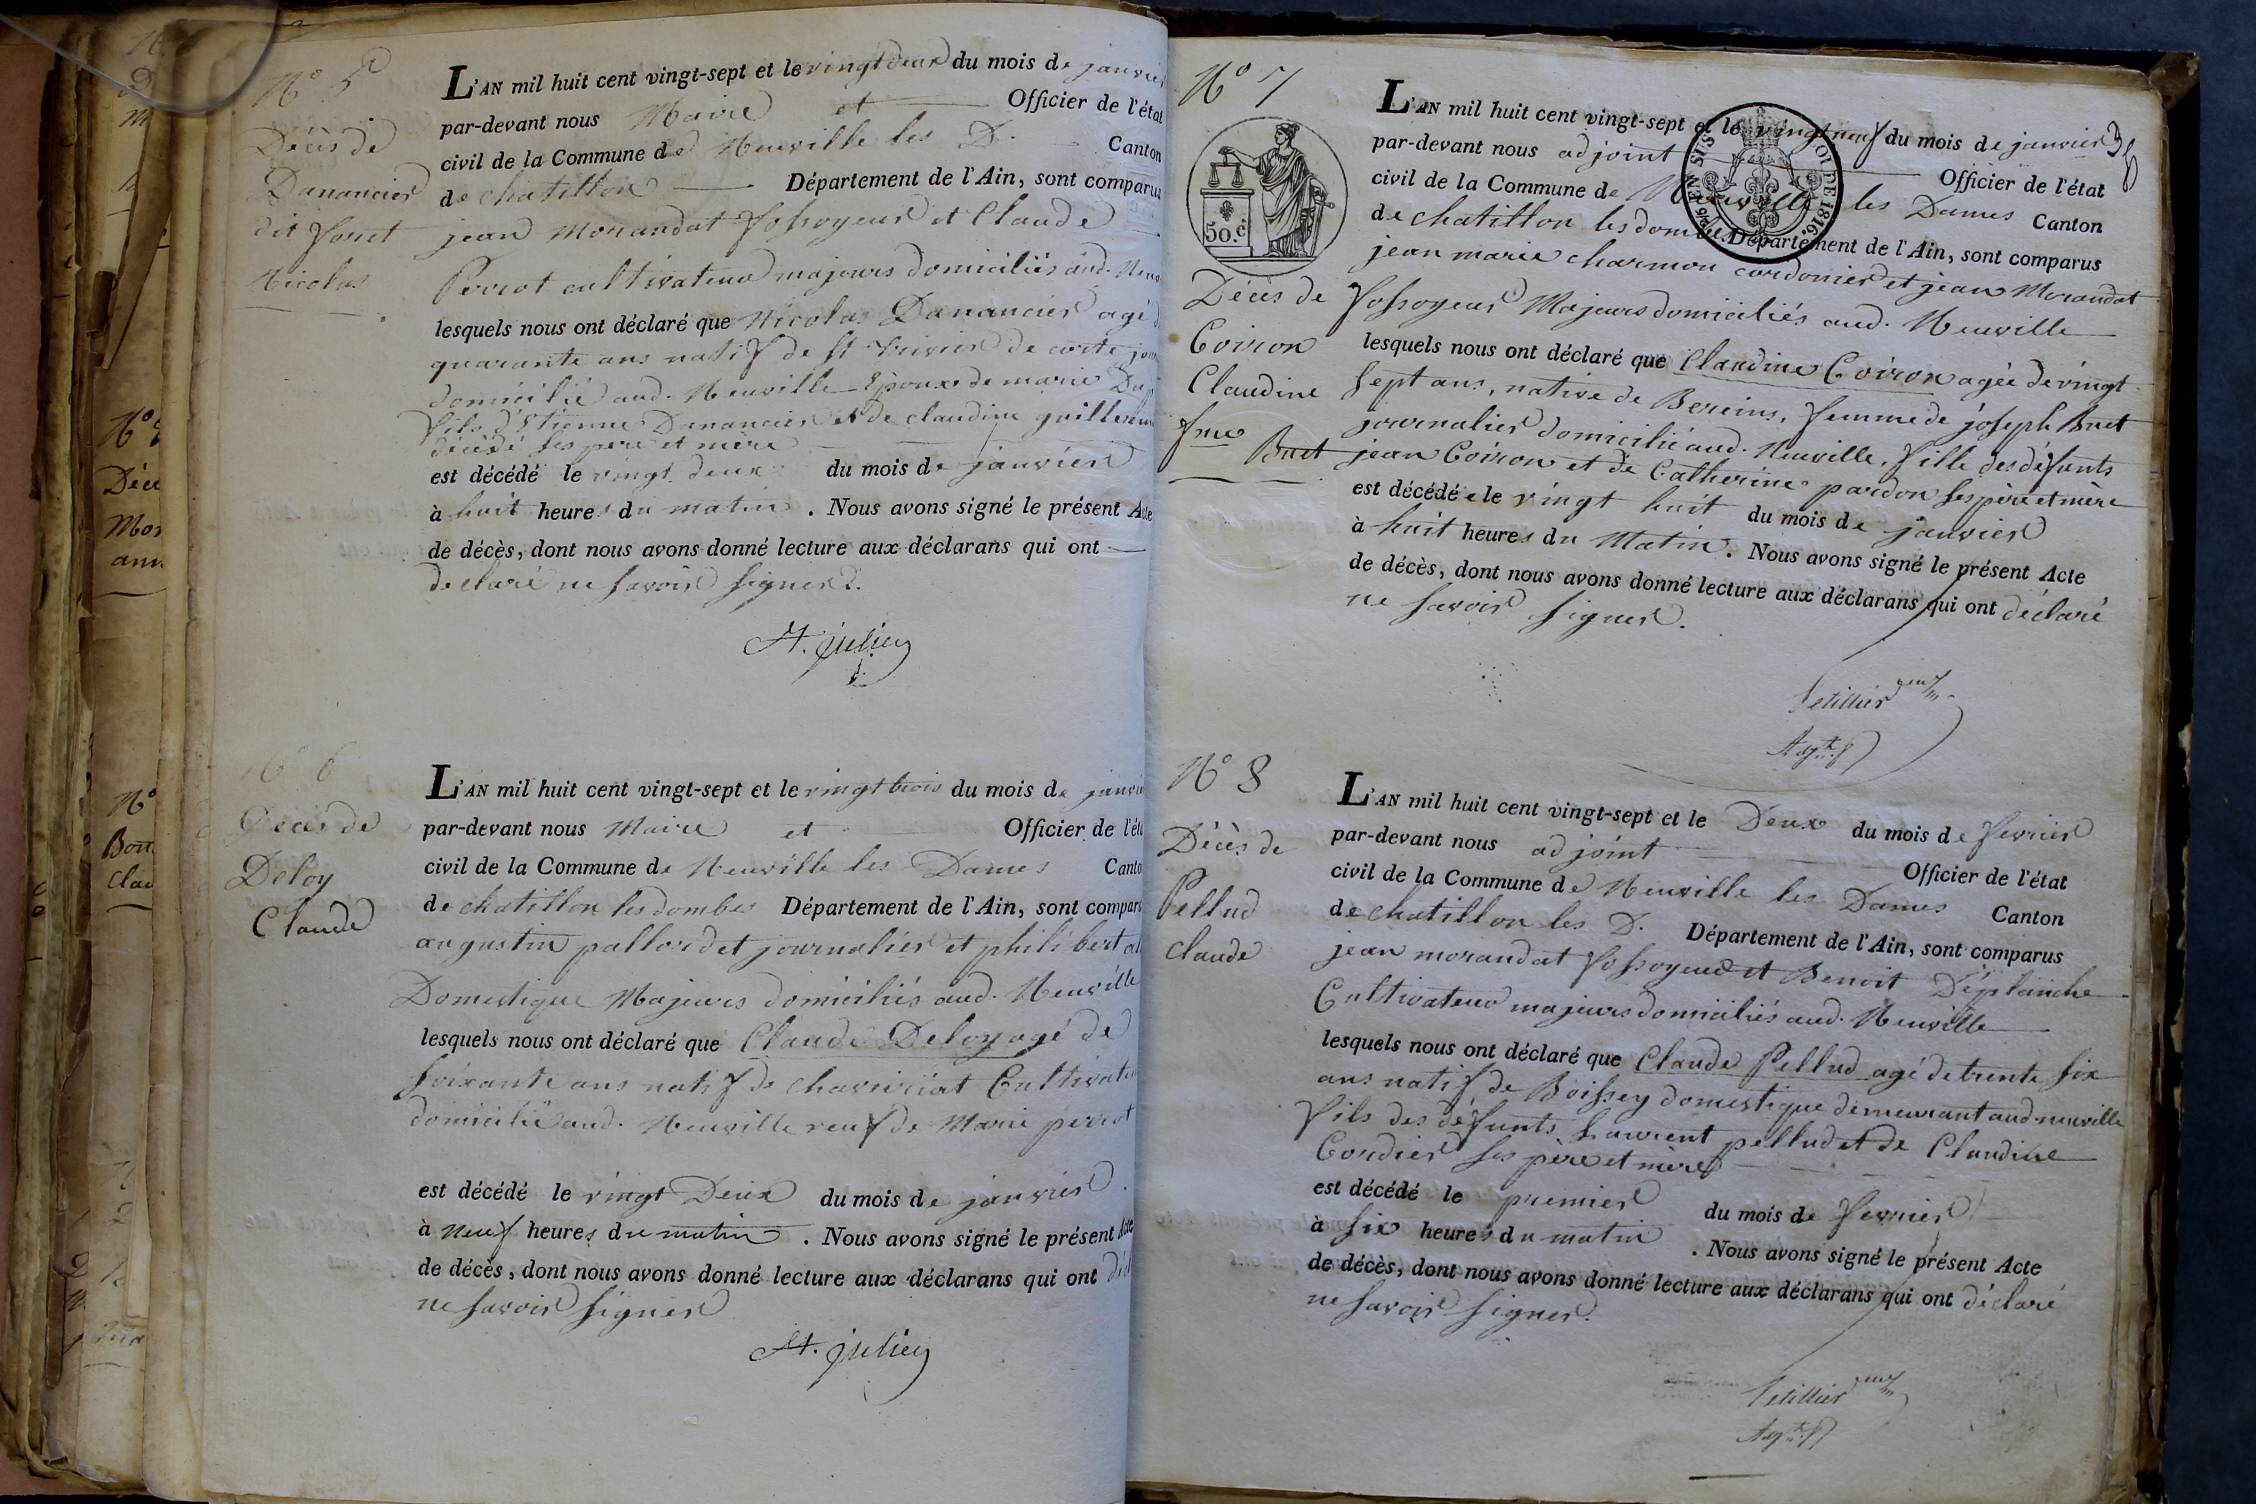 N° 5
Décès de
Danancier
dit
Nicolas
L'AN mil huit cent vingt-sept et le vingt deux du mois de janvier
par-devant nous Maire et Officier de l'état
civil de la Commune de Neuville les D. Canton
de chatillon Département de l'Ain, sont comparus
jean Morandat fossoyeur et Claude
Perrot cultivateur majeurs domiciliés aud.
lesquels nous ont déclaré que Nicolas Danancier agé
quarante ans natif de St trivier de
domicilié aud. Neuville Epoux de marie
fils d'Etienne Danancier et de claudine
décédé ses pere et mère
est décédé le vingt deux du mois de janvier
à huit heures du matin. Nous avons signé le présent Acte
de décès, dont nous avons donné lecture aux déclarans qui ont
déclaré ne savoir signer.
St. julien
N° 6
Décès de
Deloy
Claude
L'AN mil huit cent vingt-sept et le vingt trois du mois de janvi
par-devant nous Maire et Officier de l'éta
civil de la Commune de Neuville les Dames Canto
de chatillon les dombes Département de l'Ain, sont compar
augustin pallordet journalier et philibert
Domestique Majeurs domiciliés aud. Neuville
lesquels nous ont déclaré que Claude Deloy agé de
soixante ans natif de chaveiriat Cultivateu
domicilié aud. Neuville veuf de Marie perrot
est décédé le vingt Deux du mois de janvier.
à Neuf heures du matin. Nous avons signé le présent Acte
de décès, dont nous avons donné lecture aux déclarans qui ont
ne savoir signer
St. julien
N° 7
50.c
Décès de
Coiron
Claudine
fme Buet
L'AN mil huit cent vingt-sept et le vingt neuf du mois de janvier
par-devant nous adjoint Officier de l'état
civil de la Commune de Neuville les Dames Canton
de chatillon les dombes. Département de l'Ain, sont comparus
LOI DE 1816.
jean marie charmon cordonier et jean Morandat
fossoyeur Majeurs domiciliés aud. Neuville
lesquels nous ont déclaré que Claudine Coiron agée de vingt
sept ans, native de Bereins, femme de joseph Buet
journalier domicilié aud. Neuville, fille des défunts
jean Coiron et de Catherine pardon ses père et mère
est décédée le vingt huit du mois de janvier
à huit heures du Matin. Nous avons signé le présent Acte
de décès, dont nous avons donné lecture aux déclarans qui ont déclaré
ne savoir signer.
N° 8
Décès de
Pellud
claude
L'AN mil huit cent vingt-sept et le Deux du mois de fevrier
par-devant nous adjoint Officier de l'état
civil de la Commune de Neuville les Dames Canton
de chatillon les D. Département de l'Ain, sont comparus
jean morandat fossoyeur et Benoit Déplanche
Cultivateur majeurs domiciliés aud. Neuville
lesquels nous ont déclaré que Claude Pellud agé de trente six
ans natif de Boissey domestique demeurant aud neuville
fils des défunts Laurent pellud et de Claudine
Cordier ses père et mère
est décédé le premier du mois de fevrier
à six heures du matin. Nous avons signé le présent Acte
de décès, dont nous avons donné lecture aux déclarans qui ont déclaré
ne savoir signer.